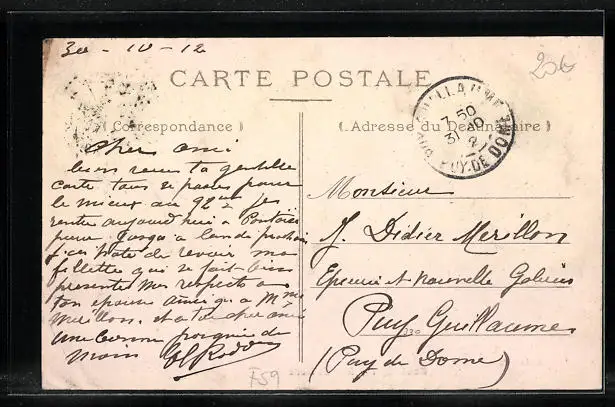 30-10-12
CARTE POSTALE
Correspondance
Adresse du Destinataire
206
PUY-GUILLAUME
7 50
31
PUY-DE-DOME
Cher ami
bien reçu ta gentille
carte tous se passe pour
le mieux au 92
rentre aujourd'hui a
pour jusqu'a
j'ai hate de revoir ma
fillette qui se fait
présente mes respects a
ton epouse ainsi qu'a Mme
Merillon. et a toi cher ami
une bonne poignée de
main
Monsieur
J. Didier Merillon
Epicerie et Nouvelle
Puy Guillaume
(Puy de Dome)
F59